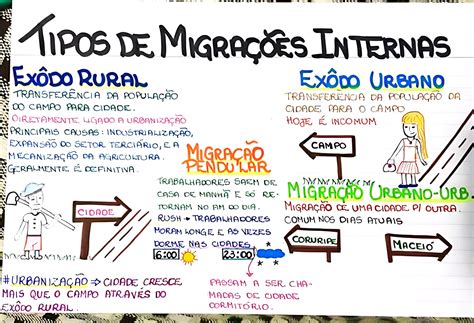 TIPOS DE MIGRAÇÕES INTERNAS
EXÔDO RURAL
TRANSFERÊNCIA DA POPULAÇÃO
DO CAMPO PARA CIDADE.
DIRETAMENTE LIGADO A URBANIZAÇÃO
PRINCIPAIS CAUSAS: INDUSTRIALIZAÇÃO,
EXPANSÃO DO SETOR TERCIÁRIO, E A
MECANIZAÇÃO DA AGRICULTURA.
GERALMENTE É DEFINITIVA.
CIDADE
#URBANIZAÇÃO → CIDADE CRESCE
MAIS QUE O CAMPO ATRAVÉS DO
EXÔDO RURAL.
MIGRAÇÃO
PENDULAR
TRABALHADORES SAEM DE
CASA DE MANHÃ E SÓ RE-
TORNAM NO FIM DO DIA.
RUSH → TRABALHADORES
MORAM LONGE E AS VEZES
DORME NAS CIDADES
6:00 23:00
PASSAM A SER CHA-
MADAS DE CIDADE
DORMITÓRIO.
EXÔDO URBANO
TRANSFERÊNCIA DA POPULAÇÃO DA
CIDADE PARA O CAMPO
HOJE É INCOMUM
CAMPO
MIGRAÇÃO URBANO-URB.
MIGRAÇÃO DE UMA CIDADE P/ OUTRA.
COMUM NOS DIAS ATUAIS
CORURIPE
MACEIÓ